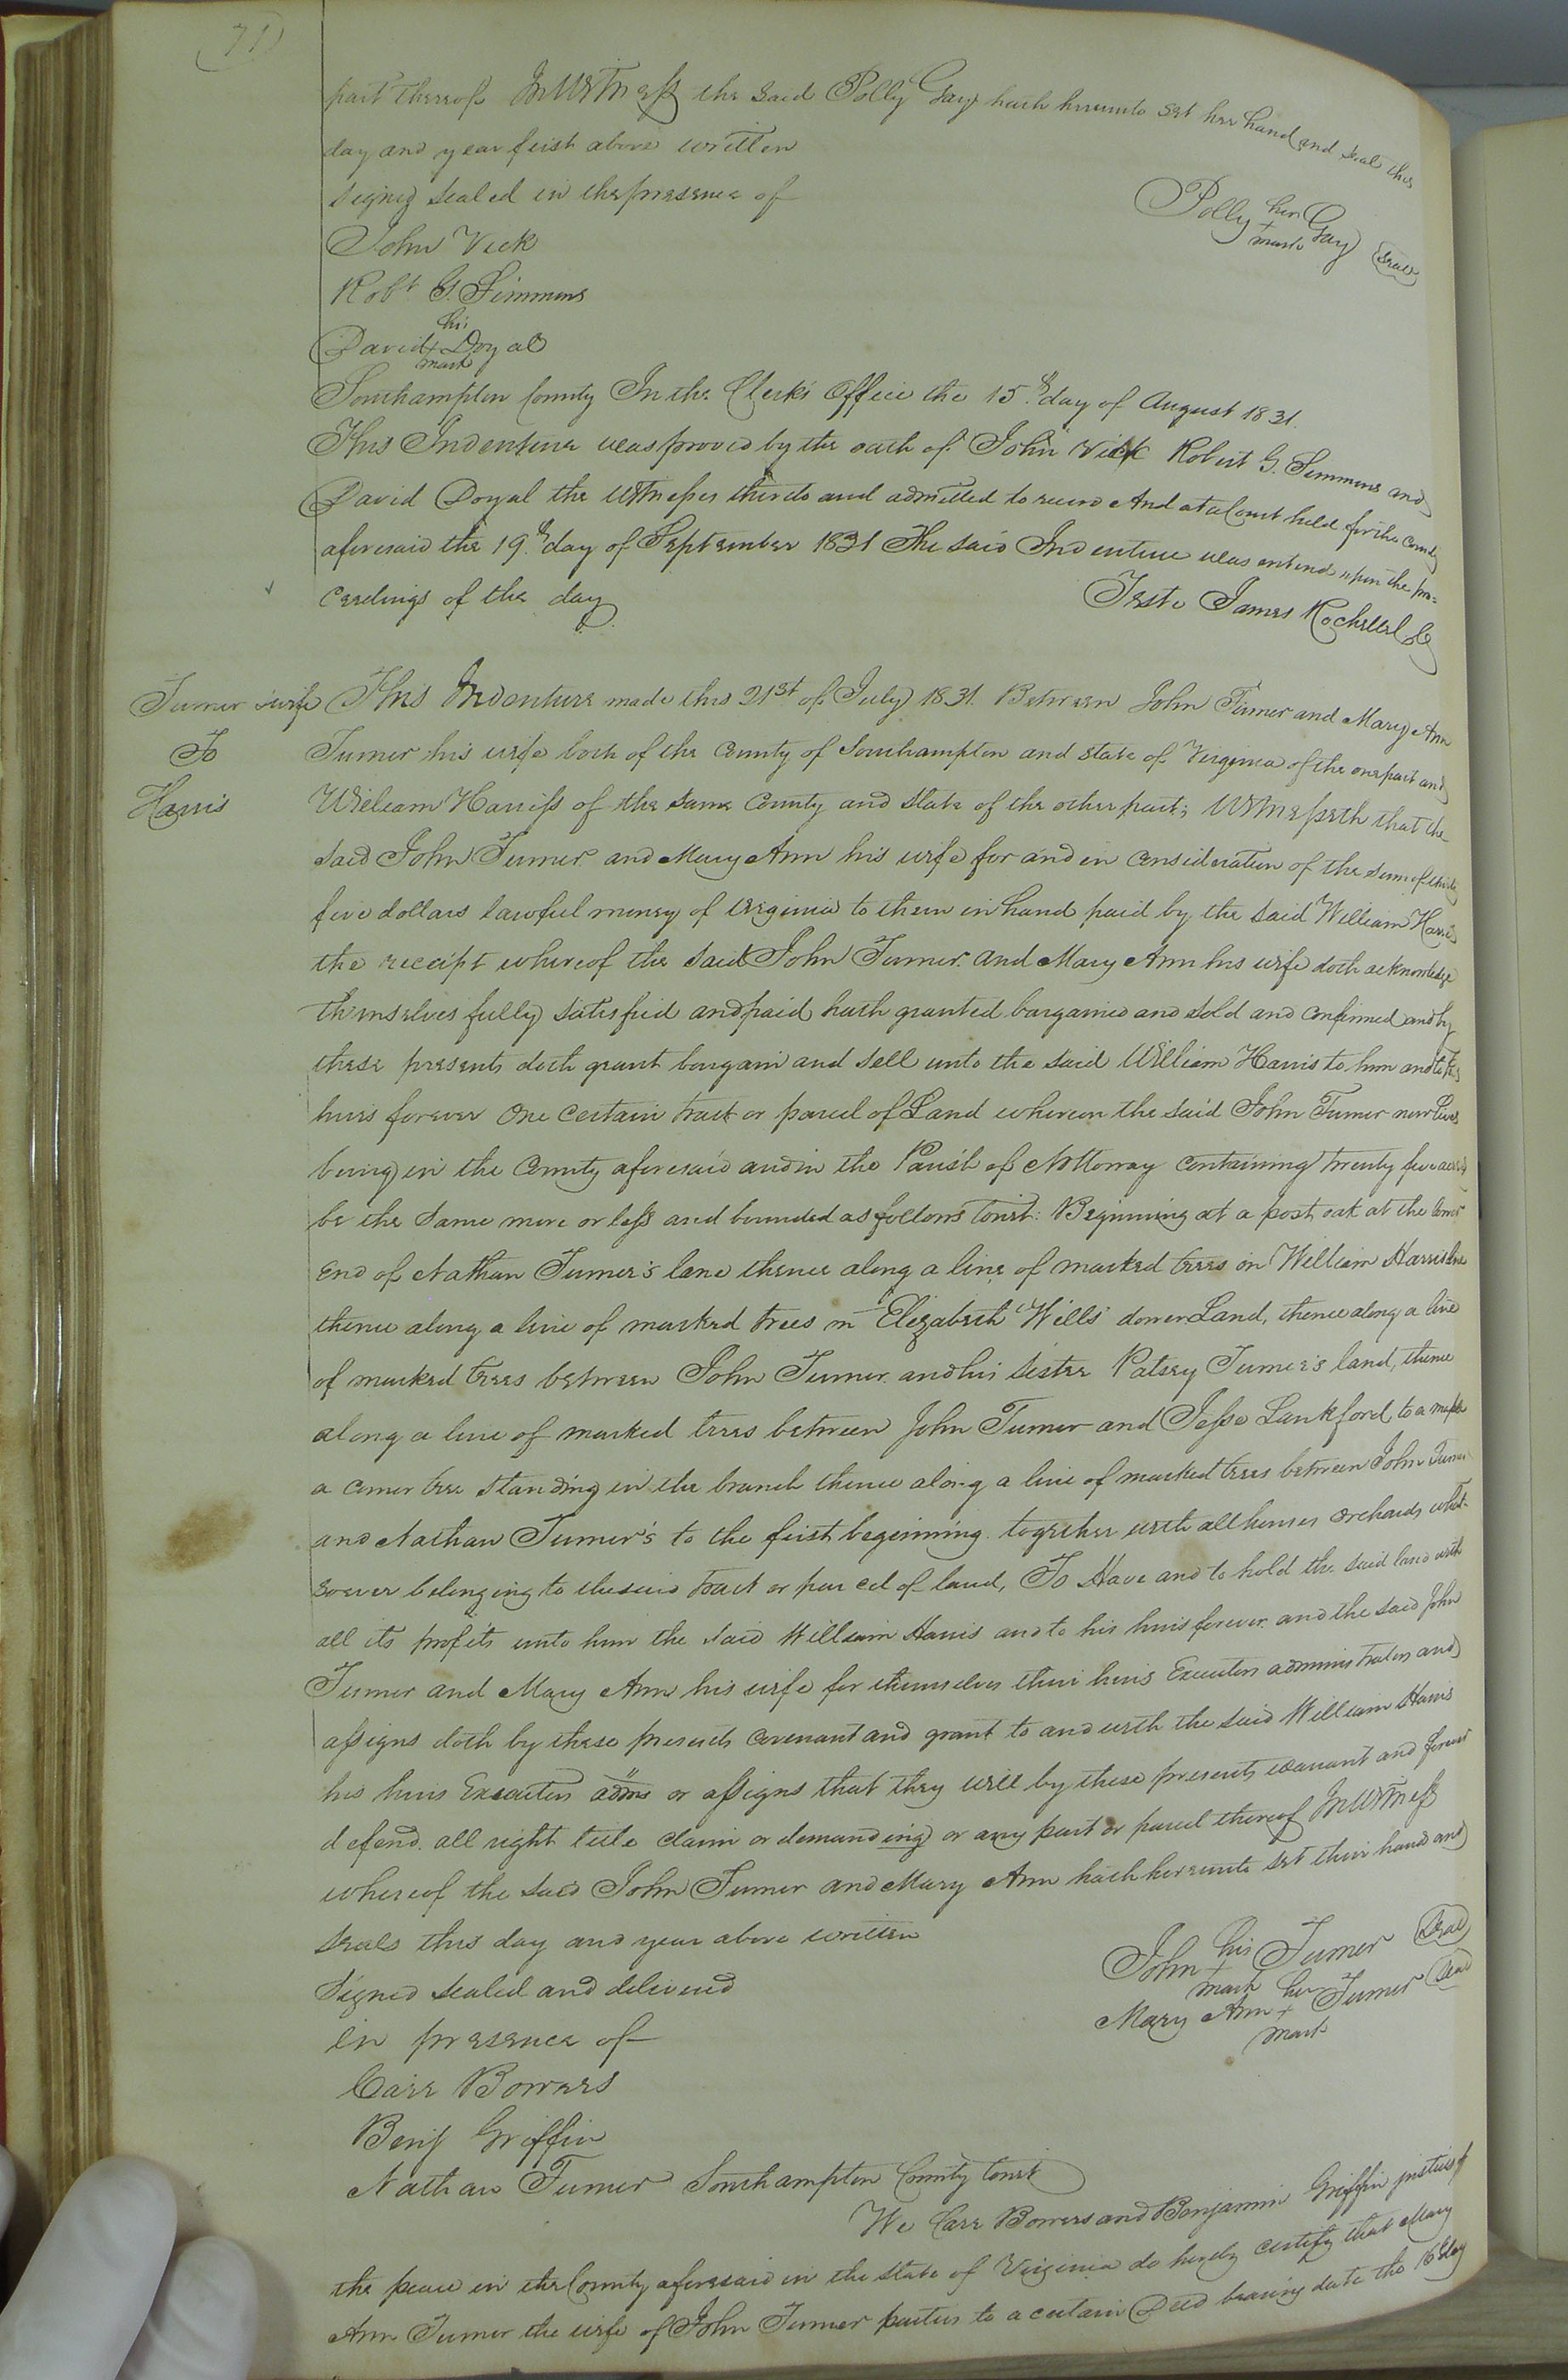 (71)
part thereof In Witness the said Polly Gay hath hereunto set her hand and seal this
day and year first above written
signed sealed in the presence of
Polly her Gay (Seal)
mark
John Vick
Robt G. Simmons
his
David + Doyal
mark
Southampton County In the Clerk's Office the 15th day of August 1831.
This Indenture was proved by the oath of John Vick Robert G. Simmons and
David Doyal the Witnesses thereto and admitted to record And at a Court held for the County
aforesaid the 19th day of September 1831 The said Indenture was entered upon the pro-
ceedings of the day
Teste James Rochelle
Turner & wife
To
Harris
This Indenture made this 21st of July 1831. Between John Turner and Mary Ann
Turner his wife both of the County of Southampton and state of Virginia of the one part and
William Harriss of the same County and State of the other part; Witnesseth that the
said John Turner and Mary Ann his wife for and in consideration of the sum of thirty
five dollars lawful money of virginia to them in hand paid by the said William Harris
the receipt whereof the said John Turner and Mary Ann his wife doth acknowledge
themselves fully satisfied and paid hath granted bargained and sold and confirmed and by
these presents doth grant bargain and sell unto the said William Harris to him and to his
heirs forever One certain tract or parcel of Land whereon the said John Turner now lives
being in the County aforesaid and in the Parish of Nottoway containing twenty five acres
be the same more or less and bounded as follows towit: Beginning at a post oak at the lower
end of Nathan Turner's lane thence along a line of marked trees on William Harris line
thence along a line of marked trees on Elizabeth Wills dower Land, thence along a line
of marked trees between John Turner and his sister Patsey Turner's land, thence
along a line of marked trees between John Turner and Jesse Lankford, to a maple
a corner tree standing in the branch thence along a line of marked trees between John Turner
and Nathan Turner's to the first beginning together with all houses orchards what-
soever belonging to the said tract or parcel of land, To Have and to hold the said land with
all its profits unto him the said William Harris and to his heirs forever. and the said John
Turner and Mary Ann his wife for themselves their heirs Executors administrators and
assigns doth by these presents covenant and grant to and with the said William Harris
his heirs Executors adms or assigns that they will by these presents warrant and forever
defend all right title claim or demanding or any part or parcel thereof In Witness
whereof the said John Turner and Mary Ann hath hereunto set their hand and
seals this day and year above written
Signed sealed and delivered
in presence of
John his + mark Turner (Seal)
Mary Ann her + mark Turner (Seal)
Carr Bowers
Benj Griffin
Nathan Turner
Southampton County towit
We Carr Bowers and Benjamin Griffin justices of
the peace in the County aforesaid in the state of Virginia do hereby certify that Mary
Ann Turner the wife of John Turner parties to a certain Deed bearing date the